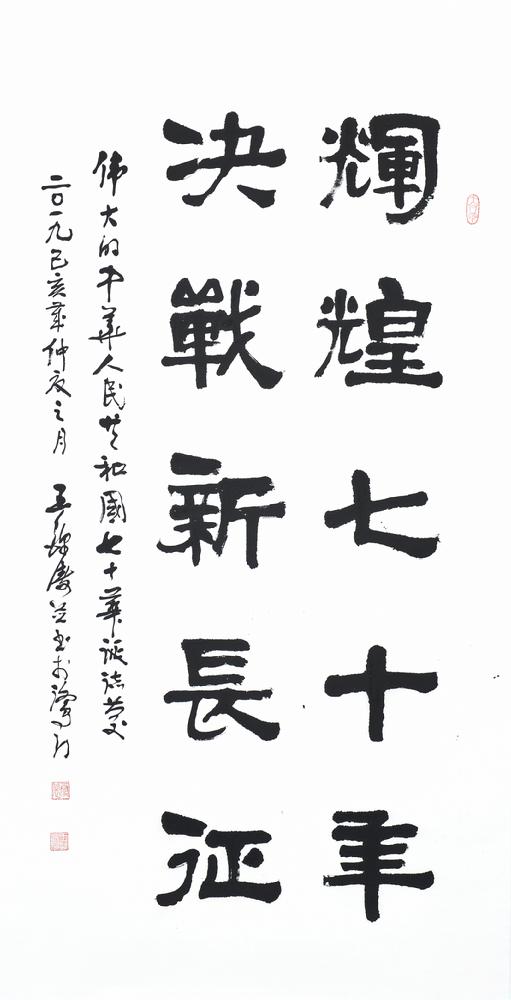 輝煌七十年
決戰新長征
伟大的中華人民共和國七十華誕誌慶
二〇一九己亥年仲夏之月 王慶並书於